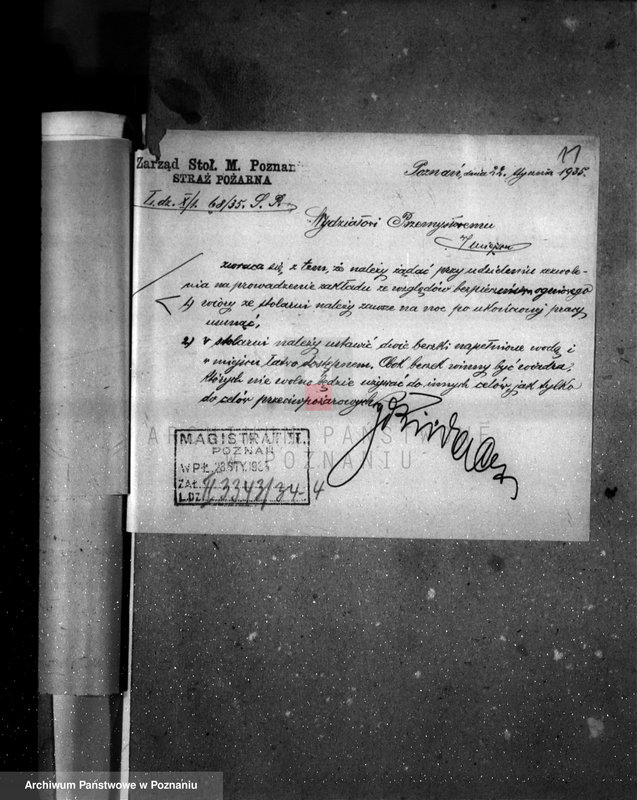 11
Zarząd Stoł. M. Poznan
STRAŻ POŻARNA
Poznań, dnia 22. stycznia 1935.
L. dz. X/1. 68/35. S. P.
Wydziałowi Przemysłowemu
w miejscu
zwraca się z tem, że należy żądać przy udzieleniu zezwole-
nia na prowadzenie zakładu ze względów bezpieczeństwa ogniowego
1) wióry ze stolarni należy zawsze na noc po ukończonej pracy
usunąć,
2) w stolarni należy ustawić dwie beczki napełnione wodą i
w miejscu łatwo dostępnem. Obok beczek winny być wiadra,
których nie wolno będzie używać do innych celów jak tylko
do celów przeciwpożarowych.
ARCHIWUM PAŃSTWOWE
W POZNANIU
MAGISTRAT
POZNAŃ
WPŁ. 23 STY. 1935
ZAŁ.
L.DZ. 3343/34-4
Archiwum Państwowe w Poznaniu